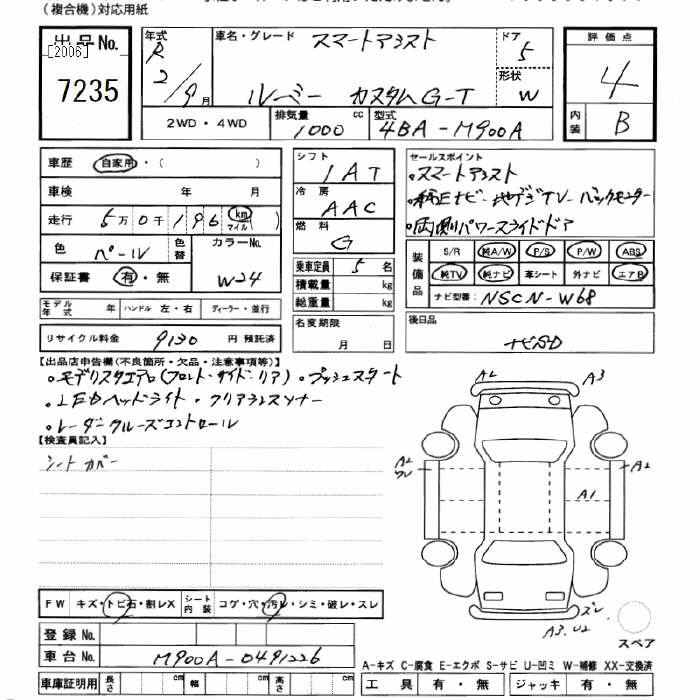 (複合機)対応用紙
出品No. [2006] 7235
年式 R 2/9月
車名・グレード スマートアシスト
ルーミー カスタムG-T
ドア 5
形状 W
評価点 4
内装 B
2WD・4WD 排気量 1000 cc 型式 4BA-M900A
車歴 自家用・( )
車検 年 月
走行 5万0千196 km マイル( )
色 パール 色替 カラーNo. W24
保証書 有・無
モデル年式 年 ハンドル 左・右 ディーラー・並行
リサイクル料金 9130 円 預託済
シフト 1AT
冷房 AAC
燃料 G
乗車定員 5名
積載量 kg
総重量 kg
名変期限 月 日
セールスポイント
・スマートアシスト
・純正ナビ・地デジTV・バックモニター
・両側パワースライドドア
装備品 S/R 純A/W P/S P/W ABS
純TV 純ナビ 革シート 外ナビ エアB
ナビ型番: NSCN-W68
後日品
ナビSD
【出品店申告欄(不良箇所・欠品・注意事項等)】
・モデリスタエアロ(フロント・サイド・リア)・プッシュスタート
・LEDヘッドライト・クリアランスソナー
・レーダークルーズコントロール
【検査員記入】
シートカバー
A2 A3
A2 A2
A1
A3.U2
スペア
FW キズ・トビ石・割レX シート内装 コゲ・穴・汚レ・シミ・破レ・スレ
登録No.
車台No. M900A-0491226
車庫証明用 長さ cm 幅 cm 高さ cm
A-キズ C-腐食 E-エクボ S-サビ U-凹ミ W-補修 XX-交換済
工具 有・無 ジャッキ 有・無